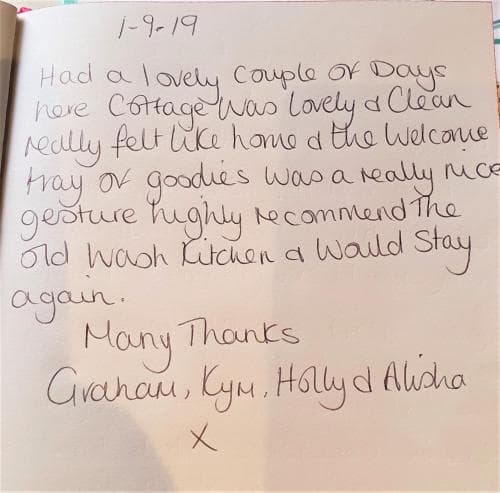 1-9-19
Had a lovely couple of Days
here Cottage was lovely & Clean
really felt like home & the welcome
tray of goodies was a really nice
gesture highly recommend The
old Wash Kitchen & Would Stay
again.
Many Thanks
Graham, Kym, Holly & Alisha
X